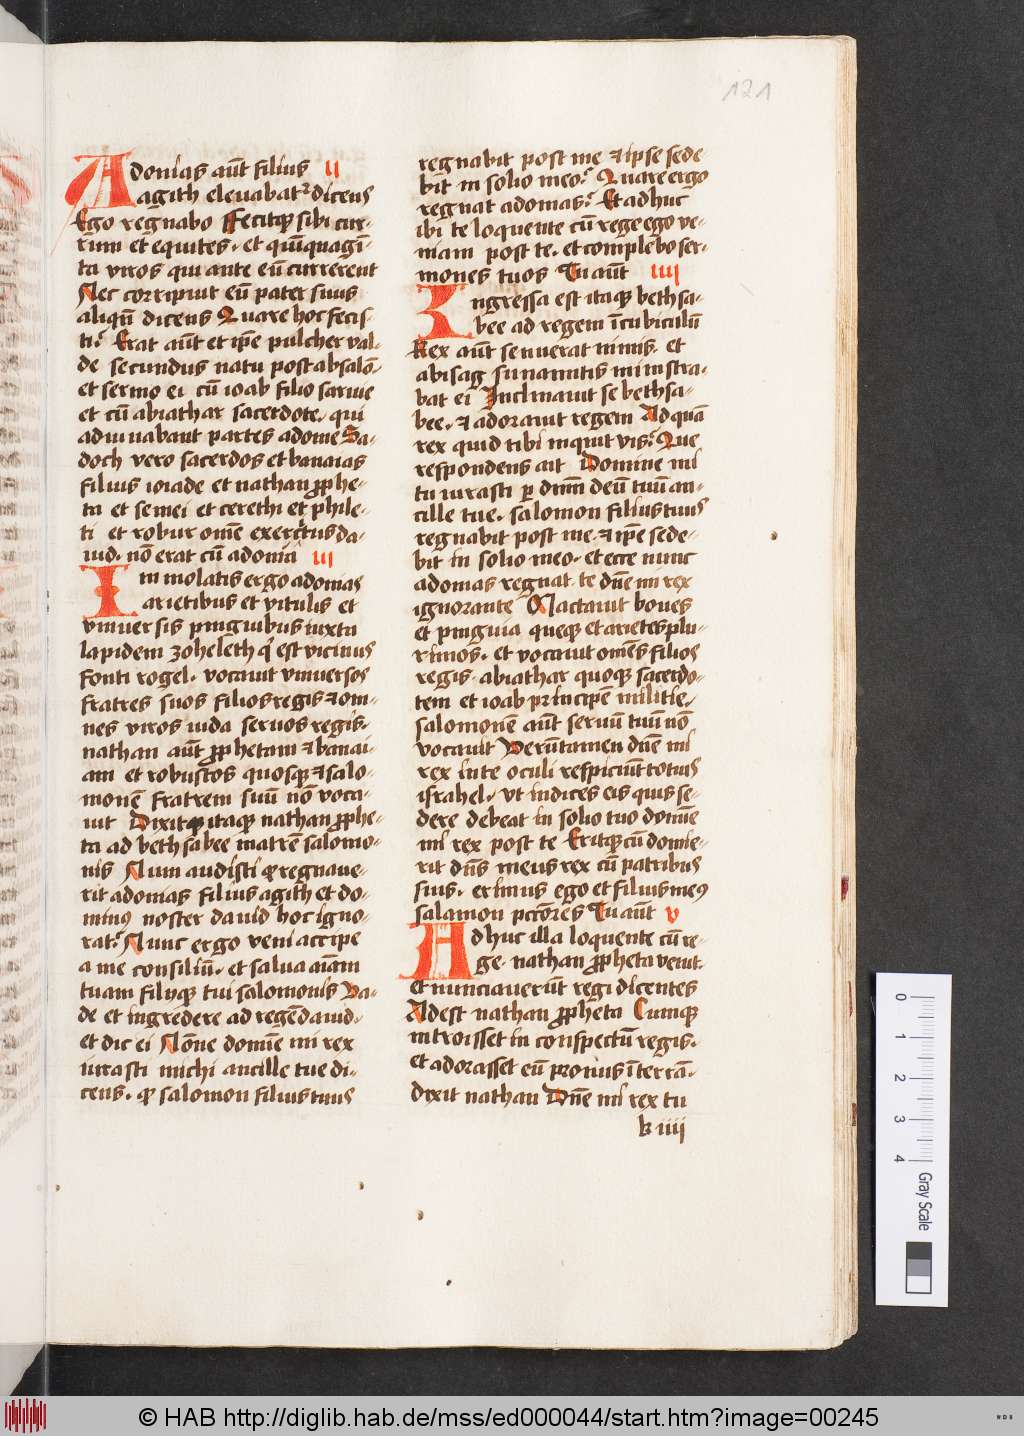 121
Adonias aūt filius II
agith elevabat᷑ dicens
Ego regnabo Fecitqꝫ sibi cur-
rum et equites. et qūīquagī-
ta viros qui ante eū currerent
Nec corripuit eū pater suus
aliqn̄ dicens Quare hoc fecis-
ti? Erat aūt et ip̄e pulcher val-
de secundus natu post absalō.
et sermo ei cū ioab filio sarvie
et cū abiathar sacerdote. qui
adiuvabant partes adonie Sa-
doch vero sacerdos et banaias
filius ioiade et nathan ꝓphe-
ta et semei et cerethi et phile-
ti et robur om̄e exercitus da-
uid. nō erat cū adonia III
Immolatis ergo adonias
arietibus et vitulis et
vniversis pinguibus iuxta
lapidem zoheleth q̇ est vicinus
fonti rogel. vocavit vniversos
fratres suos filios regis ⁊ om-
nes viros iuda servos regis.
nathan aūt ꝓphetam ⁊ banai-
am et robustos quosqꝫ ⁊ salo-
monē fratrem suū nō voca-
uit Dixit itaqꝫ nathan ꝓphe-
ta ad bethsabee matrē salomo-
nis Num audisti ꝙ regnave-
rit adonias filius agith et do-
minꝰ noster david hoc igno-
rat? Nunc ergo veni accipe
a me consiliū. et salva aīam
tuam filiiqꝫ tui salomonis Va-
de et ingredere ad regē david.
et dic ei Nōne domīe mi rex
iurasti michi ancille tue di-
cens. ꝙ salomon filius tuus
regnabit post me ⁊ ipse sede-
bit in solio meo? Quare ergo
regnat adonias? Et adhuc
ibi te loquente cū rege ego ve-
niam post te. et complebo ser-
mones tuos Tu aūt IIII
Ingressa est itaqꝫ bethsa-
bee ad regem ī cubiculū
Rex aūt senuerat nimis. et
abisag sunamitis ministra-
bat ei Inclinavit se bethsa-
bee. ⁊ adoravit regem Ad quā
rex quid tibi inquit vis? Que
respondens ait Domine mi
tu iurasti ꝑ dn̄m deū tuū an-
cille tue. salomon filius tuus
regnabit post me. ⁊ ip̄e sede-
bit in solio meo. et ecce nunc
adonias regnat. te dn̄e mi rex
ignorante Mactavit boves
et pinguia queqꝫ et arietes plu-
rimos. et vocavit om̄es filios
regis. abiathar quoqꝫ sacerdo-
tem et ioab principē militie.
salomonē aūt servū tuū nō
vocavit Verūtamen dn̄e mi
rex in te oculi respiciūt totius
israhel. vt indices eis quis se-
dere debeat in solio tuo domīe
mi rex post te Eritqꝫ cū domie-
rit dn̄s meus rex cū patribus
suis. erimus ego et filius meꝰ
salamon pctōres Tu aūt V
Adhuc illa loquente cū re-
ge. nathan ꝓpheta venit.
et nunciaverūt regi dicentes
Adest nathan ꝓpheta Cumqꝫ
introisset in conspectū regis.
et adorasset eū pronus ī terrā.
dixit nathan Dn̄e mi rex tu
k iiii
0 1 2 3 4
Gray Scale
© HAB http://diglib.hab.de/mss/ed000044/start.htm?image=00245